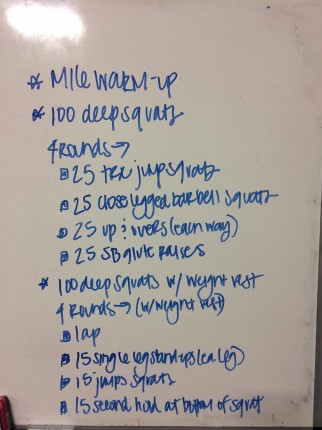 * Mile warm-up
* 100 deep squats
4 Rounds →
25 trx jump squats
25 close legged barbell squats
25 up & overs (each way)
25 SB glute raises
* 100 deep squats w/ weight vest
4 Rounds → (w/ weight vest)
1 lap
15 single leg stand-ups (ea. leg)
15 jump squats
15 second hold at bottom of squat